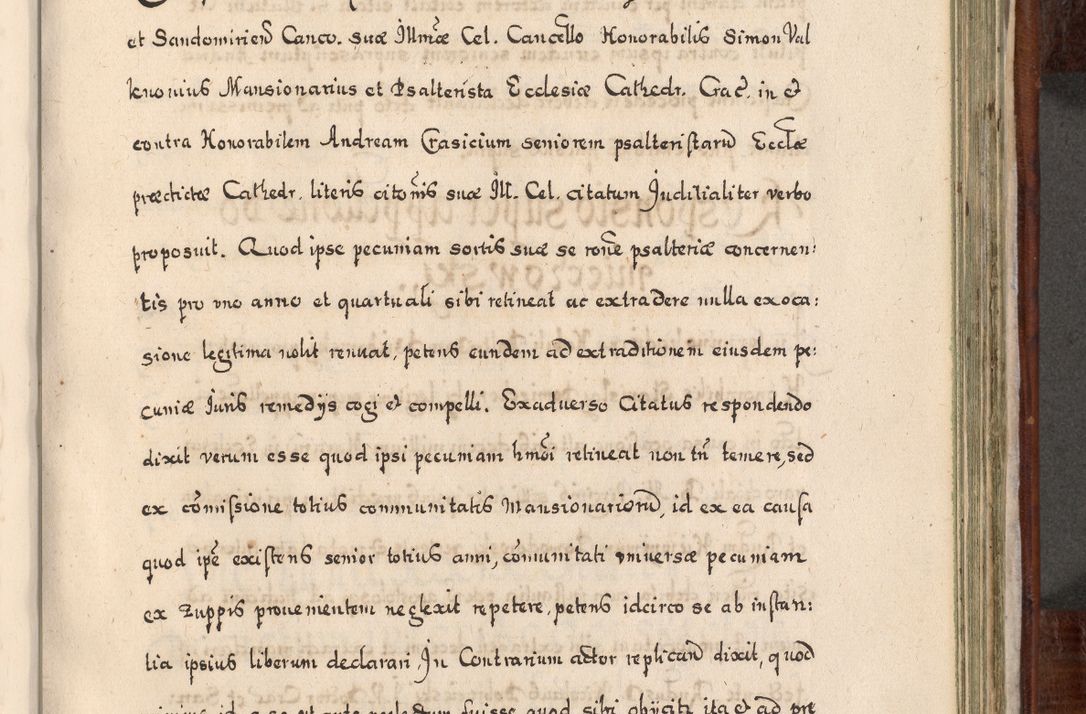 et Sandomirien̄ Canco. suæ Illmæ Cel. Cancello Honorabilis Simon Val
knonius Mansionarius et Psalterista Ecclesiæ Cathedr. Crac̄. in et
contra Honorabilem Andream Crasicium seniorem psalteristarū Ecclæ
prædictæ Cathedr. literis citōnis suæ Ill. Cel. citatum Judicialiter verbo
proposuit. Quod ipse pecuniam sortis suæ se rōne psalteriæ concernen:
tis pro vno anno et quartuali sibi retineat ac extradere nulla ex oca:
sione legitima nolit renuat, petens eundem ad extraditionem eiusdem pe:
cuniæ Juris remedijs cogi et compelli. Exaduerso Citatus respondendo
dixit verum esse quod ipsi pecuniam hmōi retineat non tn̄ temere, sed
ex cōmissione totius communitatis Mansionariorū, id ex ea causa
quod ipē existens senior totius anni, cōmunitati vniversæ pecuniam
ex Zuppis prouenientem neglexit repetere, petens idcirco se ab instan:
tia ipsius liberum declarari, In Contrarium actor replicand̄ dixit, quod
id a se et ante neglectum fuisse quod sibi obijciti ita et ad pre